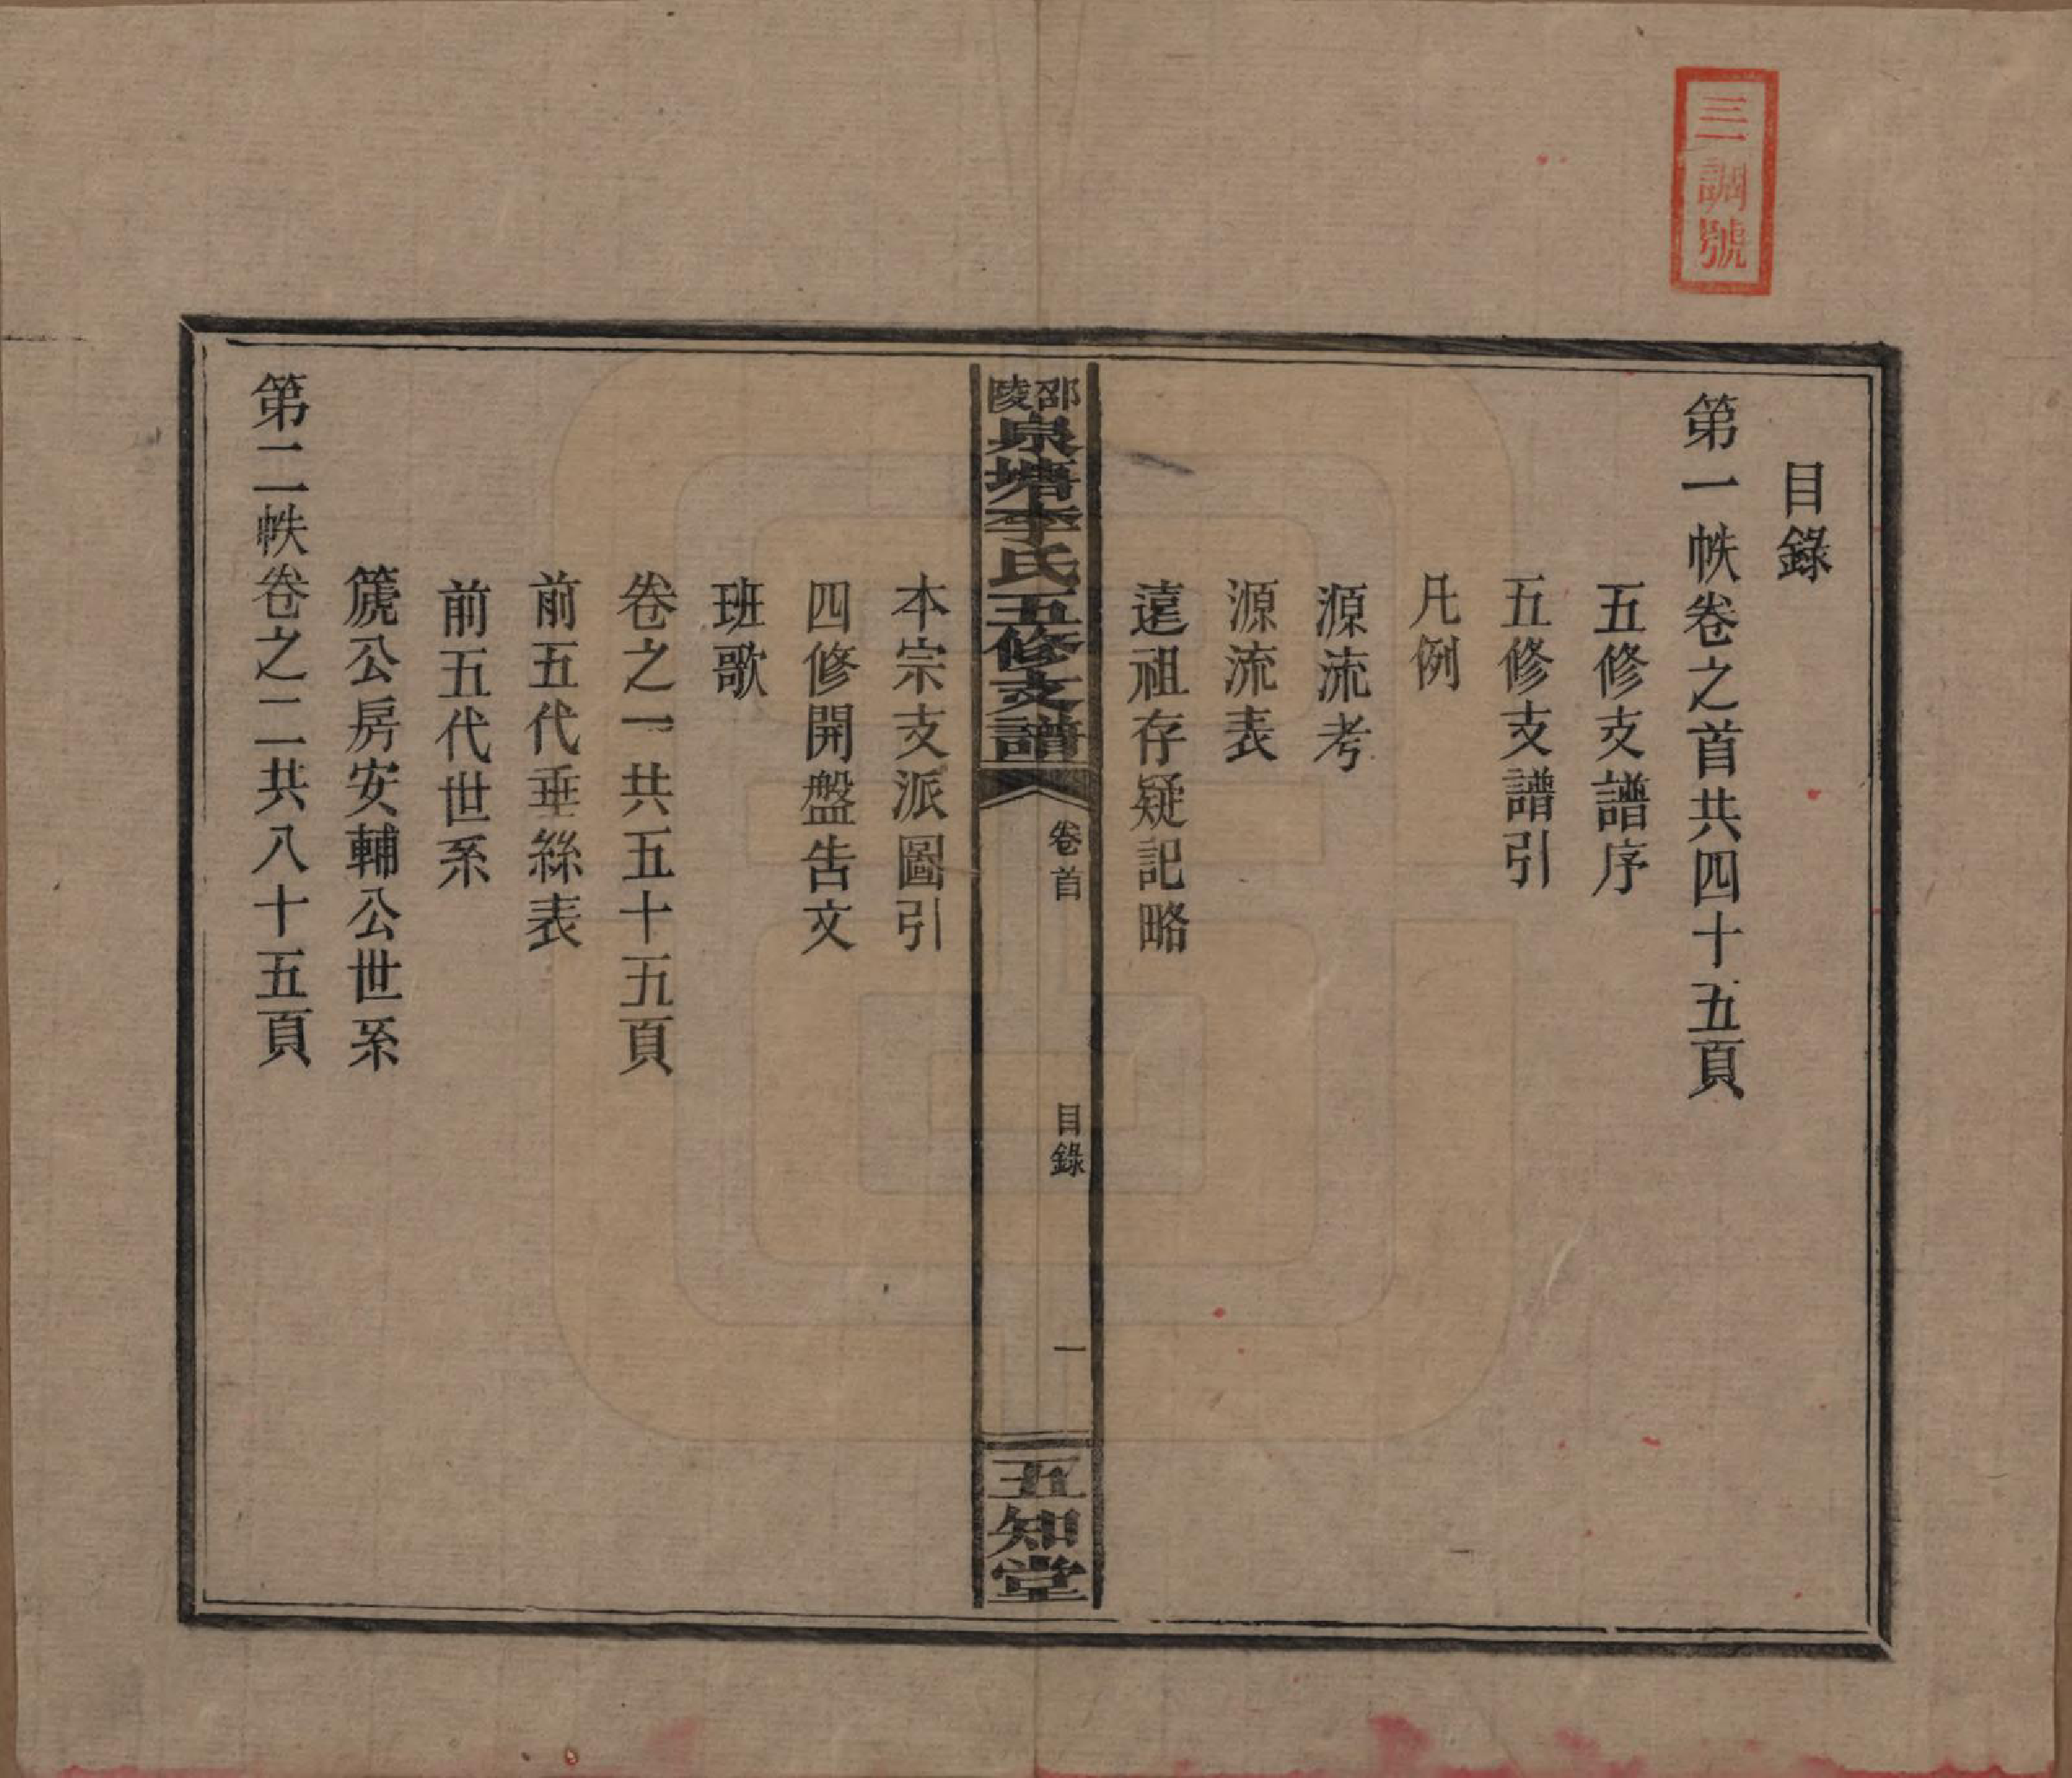 三一調號
目錄
第一帙卷之首共四十五頁
五修支譜序
五修支譜引
凡例
源流考
源流表
遠祖存疑記略
邵陵泉塘李氏五修支譜
卷首
目錄
一
五知堂
本宗支派圖引
四修開盤告文
班歌
卷之一共五十五頁
前五代垂絲表
前五代世系
篪公房安輔公世系
第二帙卷之二共八十五頁